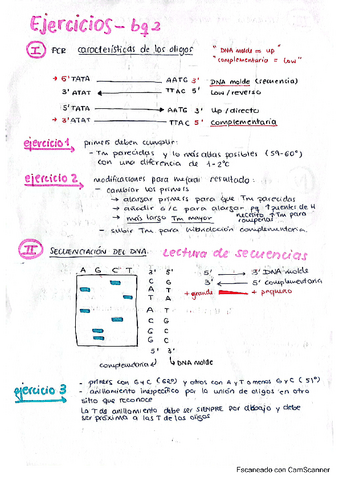 Ejercicios - bq2
I PCR características de los oligos
"DNA molde = up"
"complementaria = low"
5' TATA AATG 3' DNA molde (secuencia)
3' ATAT TTAC 5' Low/reverso
5' TATA AATG 3' Up/directo
3' ATAT TTAC 5' complementaria
ejercicio 1 primers deben cumplir:
- Tm parecidas y lo más altas posibles (59-60º)
con una diferencia de 1-2ºC
ejercicio 2 modificaciones para mejorar resultado:
- cambiar los primers
→ alargar primers para que Tm parecidas
→ añadir G/C para alargar pq ↑ puentes de H
→ más largo Tm mayor necesito ↑ Tm para romperlos
- subir Tm para hibridación complementaria.
II SECUENCIACIÓN DEL DNA: Lectura de secuencias
A G C T
3' 5'
C G
A T
T A
A T
C G
G C
G C
5' 3'
complementaria DNA molde
5' → 3' DNA molde
3' ← 5' complementaria
+ grande + pequeño
ejercicio 3 - primers con G y C (62º) y otros con A y T o menos G y C (51º)
- anillamiento inespecífico por la unión de oligos en otro
sitio que reconoce
La T de anillamiento debe ser SIEMPRE por debajo y debe
ser próxima a las T de los oligos
Escaneado con CamScanner